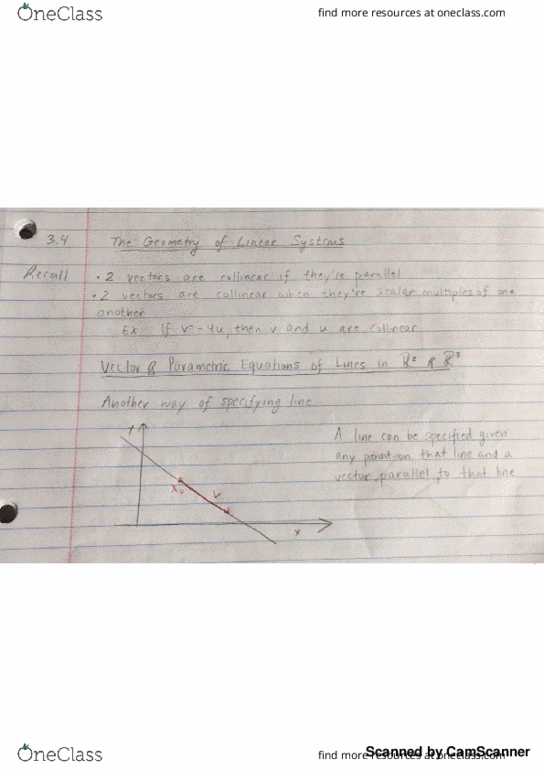 OneClass
find more resources at oneclass.com
3.4 The Geometry of Linear Systems
Recall • 2 vectors are collinear if they're parallel
• 2 vectors are collinear when they're scalar multiples of one
another
Ex If v = 4u, then v and u are collinear
Vector & Parametric Equations of Lines in R² & R³
Another way of specifying line
A line can be specified given
any point on that line and a
vector parallel to that line
y
x₀
v
x
OneClass
find more resources at oneclass.com
Scanned by CamScanner